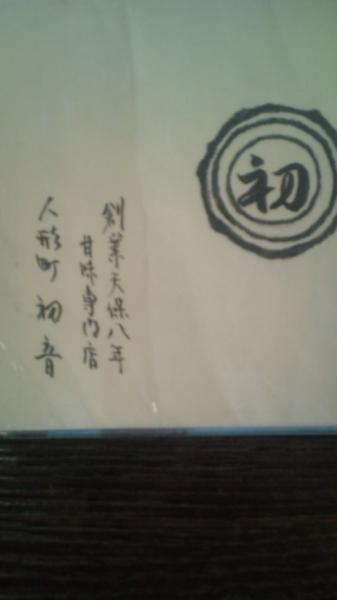 初
創業天保八年
甘味専門店
人形町初音